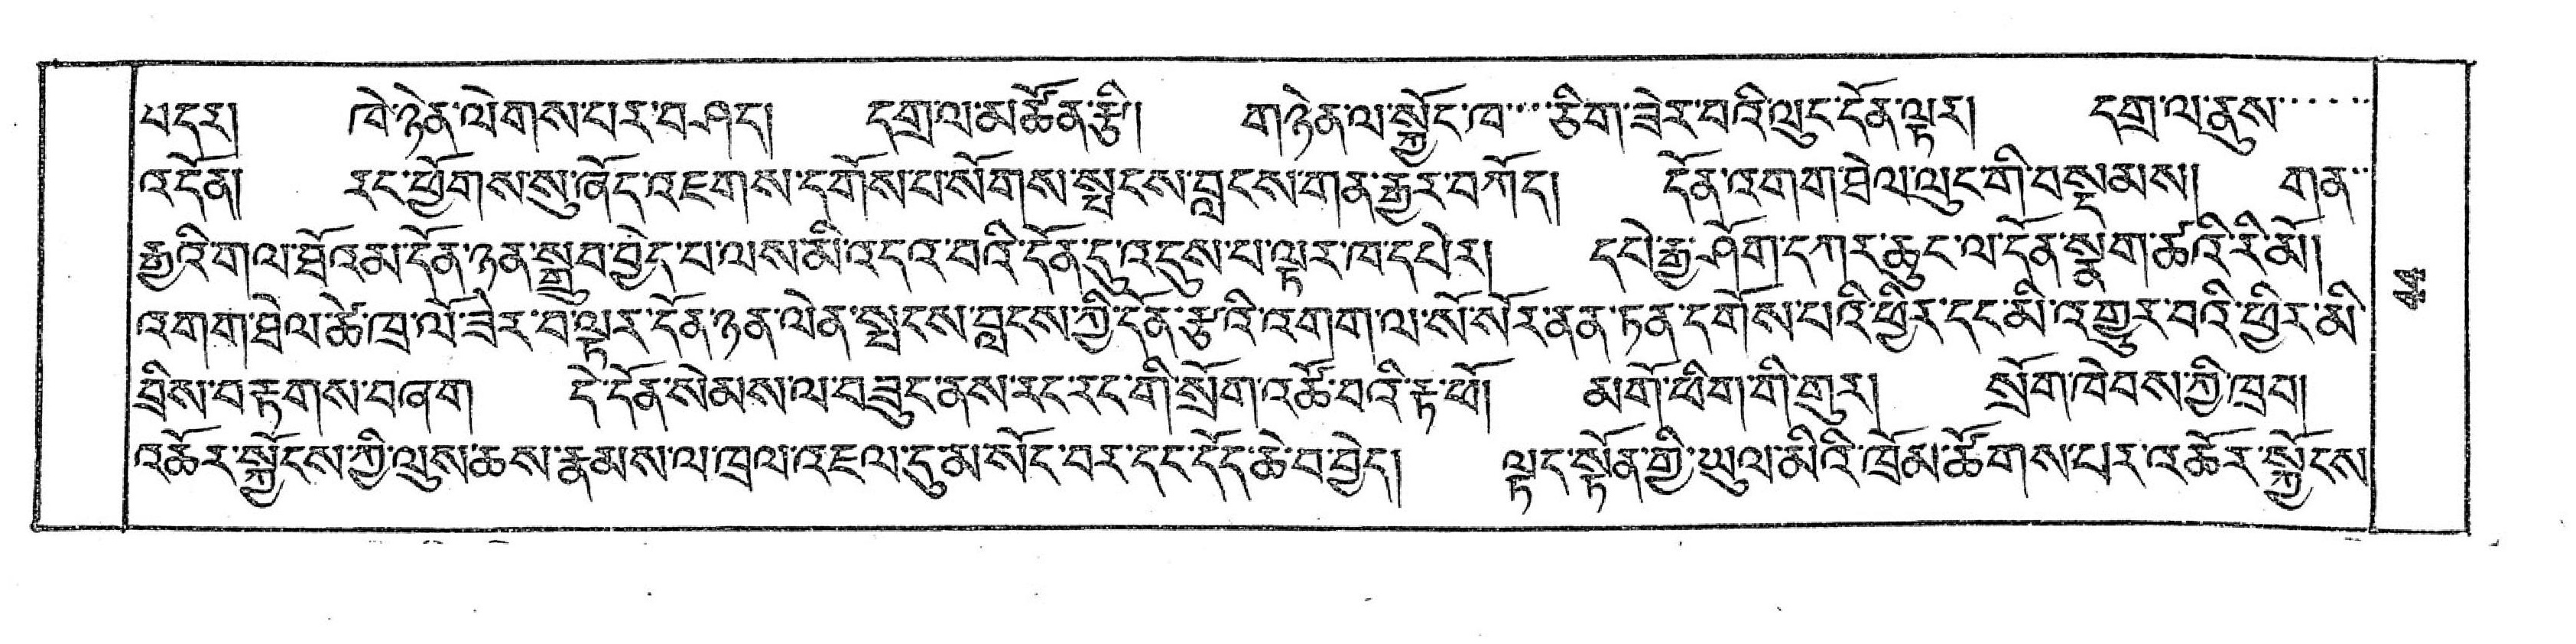 པདར། ཁེ་ཉེན་ལེགས་པར་བཤད། དགྲ་ལ་མཚོན་རྩི། གཉེན་ལ་སྐྱོང་ཁ་་་་ཅིག་ཟེར་བའི་ལུང་དོན་ལྟར། དགྲ་ལ་ནུས་་་་་་
འདོན། རང་ཕྱོགས་སུ་ཞོད་འཇགས་དགོས་པ་སོགས་སྤངས་བླངས་གན་རྒྱར་བཀོད། དོན་འགག་ཐེལ་ལུང་གི་བསྡམས། གན་་
རྒྱའི་གལ་ཐོའམ་དོན་ཉན་སྒྲུབ་བྱེད་པ་ལས་མི་འདའ་བའི་དོན་དུ་འདུས་པ་ལྟར་ཁ་དཔེར། དཔེ་རྒྱ་ཤོག་དཀར་ཆུང་ལ་དོན་སྣག་ཚའི་རི་མོ།
འགག་ཐེལ་ཚེ་ཁྲ་ལོ་ཟེར་བ་ལྟར་དོན་ཉན་ལེན་སྤངས་བླངས་ཀྱི་དོན་རྩ་འི་འགག་ལ་སོ་སོར་ནན་ཏན་དགོས་པའི་ཕྱིར་དང་མི་འགྱུར་བའི་ཕྱིར་མི་
བྲིས་བརྟགས་བཞག དེ་དོན་སེམས་ལ་བཟུང་ནས་རང་རང་གི་སྲོག་འཚོ་བའི་རྟ་ཕོ། མགོ་ཕིག་གི་གུར། སྲོག་ཁེབས་ཀྱི་ཁྲབ།
འཆོར་སྐྱོངས་ཀྱི་ལུས་ཆས་རྣམས་ལ་ཁྲལ་འཇལ་དུ་མ་སོང་བར་དང་དོད་ཆེ་བ་བྱེད། ལྟད་སྟོན་གྱི་ཡུལ་མིའི་ཁྲོམ་ཚོགས་པར་འཆོར་སྐྱོངས